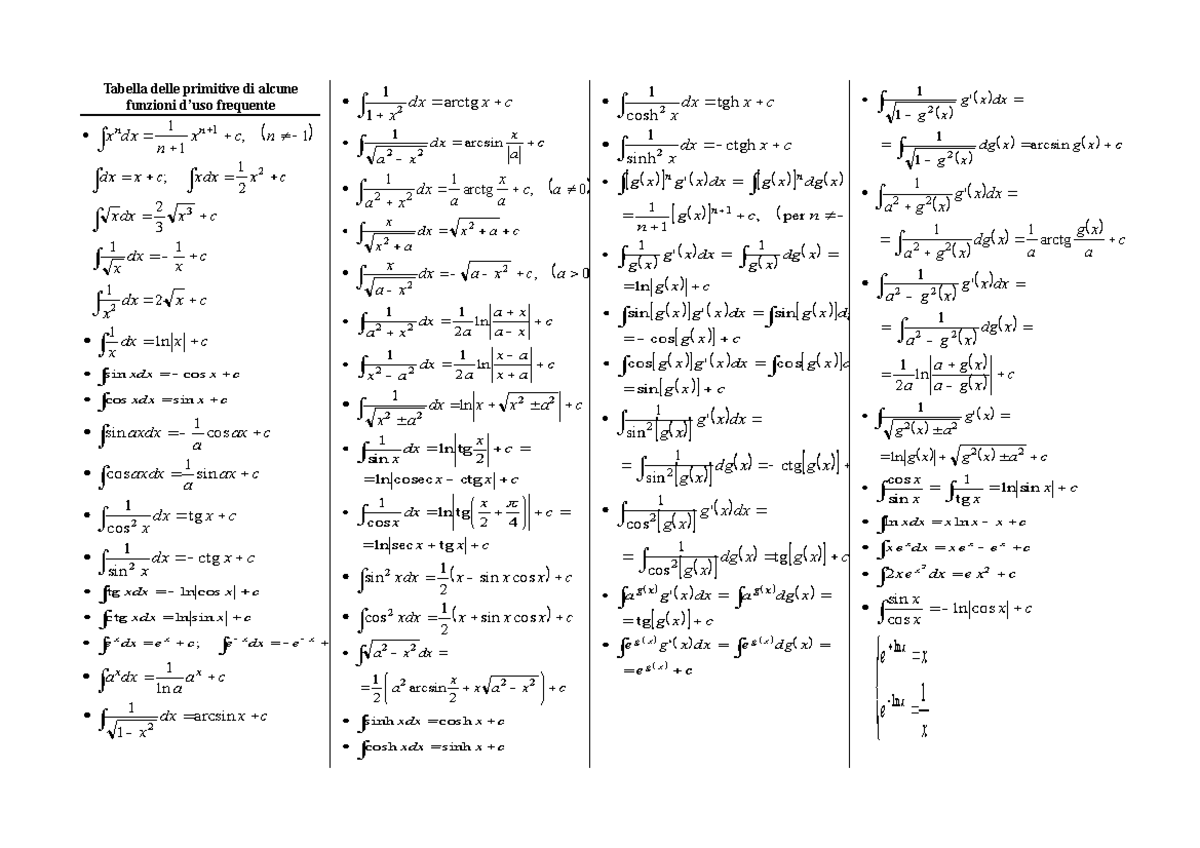 Tabella delle primitive di alcune
funzioni d’uso frequente
• ∫xⁿdx = 1/(n+1) xⁿ⁺¹ + c, (n ≠ - 1)
∫dx = x + c; ∫xdx = 1/2 x² + c
∫√x dx = 2/3 √x³ + c
∫1/√x dx = - 1/x + c
∫1/x² dx = 2√x + c
• ∫1/x dx = ln|x| + c
• ∫sin xdx = - cos x + c
• ∫cos xdx = sin x + c
• ∫sin axdx = - 1/a cos ax + c
• ∫cos axdx = 1/a sin ax + c
• ∫1/cos² x dx = tg x + c
• ∫1/sin² x dx = - ctg x + c
• ∫tg xdx = - ln|cos x| + c
• ∫ctg xdx = ln|sin x| + c
• ∫eˣdx = eˣ + c; ∫e⁻ˣdx = -e⁻ˣ +
• ∫aˣdx = 1/(ln a) aˣ + c
• ∫1/√(1 - x²) dx = arcsin x + c
• ∫1/(1 + x²) dx = arctg x + c
• ∫1/√(a² - x²) dx = arcsin x/|a| + c
• ∫1/(a² + x²) dx = 1/a arctg x/a + c, (a ≠ 0
• ∫x/√(x² + a) dx = √(x² + a) + c
• ∫x/√(a - x²) dx = - √(a - x²) + c, (a > 0
• ∫1/(a² + x²) dx = 1/2a ln|(a + x)/(a - x)| + c
• ∫1/(x² - a²) dx = 1/2a ln|(x - a)/(x + a)| + c
• ∫1/√(x² ± a²) dx = ln|x + √(x² ± a²)| + c
• ∫1/sin x dx = ln|tg x/2| + c =
= ln|cosec x - ctg x| + c
• ∫1/cos x dx = ln|tg(x/2 + π/4)| + c =
= ln|sec x + tg x| + c
• ∫sin² xdx = 1/2 (x - sin x cos x) + c
• ∫cos² xdx = 1/2 (x + sin x cos x) + c
• ∫√(a² - x²) dx =
= 1/2 (a² arcsin x/2 + x√(a² - x²)) + c
• ∫sinh xdx = cosh x + c
• ∫cosh xdx = sinh x + c
• ∫1/cosh² x dx = tgh x + c
• ∫1/sinh² x dx = - ctgh x + c
• ∫[g(x)]ⁿ g'(x)dx = ∫[g(x)]ⁿ dg(x)
= 1/(n+1) [g(x)]ⁿ⁺¹ + c, (per n ≠ -
• ∫1/g(x) g'(x)dx = ∫1/g(x) dg(x) =
= ln|g(x)| + c
• ∫sin[g(x)]g'(x)dx = ∫sin[g(x)]dg
= - cos[g(x)] + c
• ∫cos[g(x)]g'(x)dx = ∫cos[g(x)]d
= sin[g(x)] + c
• ∫1/sin²[g(x)] g'(x)dx =
= ∫1/sin²[g(x)] dg(x) = - ctg[g(x)] +
• ∫1/cos²[g(x)] g'(x)dx =
= ∫1/cos²[g(x)] dg(x) = tg[g(x)] + c
• ∫a^g(x) g'(x)dx = ∫a^g(x) dg(x) =
= tg[g(x)] + c
• ∫e^g(x) g'(x)dx = ∫e^g(x) dg(x) =
= e^g(x) + c
• ∫1/√(1 - g²(x)) g'(x)dx =
= ∫1/√(1 - g²(x)) dg(x) = arcsin g(x) + c
• ∫1/(a² + g²(x)) g'(x)dx =
= ∫1/(a² + g²(x)) dg(x) = 1/a arctg g(x)/a + c
• ∫1/(a² - g²(x)) g'(x)dx =
= ∫1/(a² - g²(x)) dg(x) =
= 1/2a ln|(a + g(x))/(a - g(x))| + c
• ∫1/√(g²(x) ± a²) g'(x) =
= ln|g(x)| + √(g²(x) ± a²) + c
• ∫cos x/sin x = ∫1/tg x = ln|sin x| + c
• ∫ln xdx = x ln x - x + c
• ∫x eˣdx = x eˣ - eˣ + c
• ∫2x e^x² dx = e x² + c
• ∫sin x/cos x = - ln|cos x| + c
e^(+ln x) = x
e^(-ln x) = 1/x